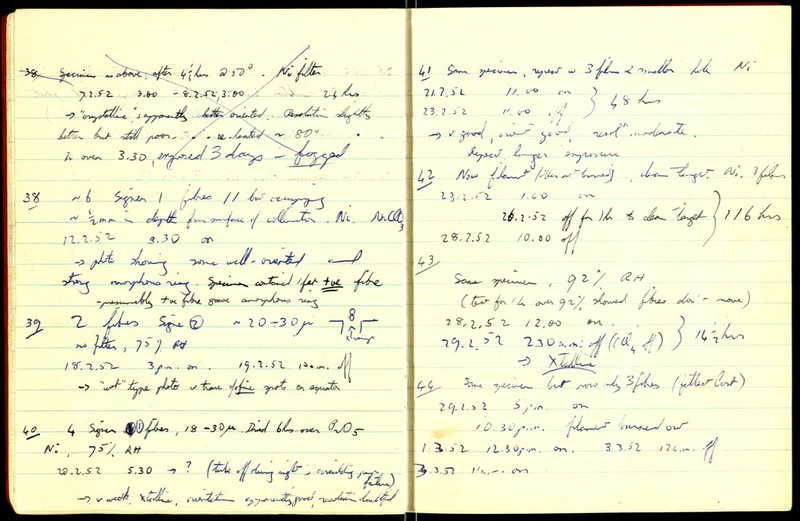 38 Specimen as above, after 4½ hrs @ 50°. Ni filter
7.2.52 3.00 - 8.2.52, 3.00 24 hrs
→ "crystalline", apparently better oriented. Resolution slightly
better but still poor. re-heated ~ 80°
in over 3.30, exposed 3 days — fogged
38 ~6 Signer 1 fibres 11 bit occupying
~ ½mm in depth from surface of collimator. Ni. NaClO3
12.2.52 3.30 on
→ photo showing some well-oriented and
strong amorphous ring. Specimen contained 1 fat +ve fibre
- presumably +ve fibre gave amorphous ring
39 2 fibres Signer ② ~20-30μ
no filter, 75% RH
18.2.52 3 p.m. on. 19.2.52 10 a.m. off
→ "wet" type photo + trace of fine spots on equator
40 4 Signer fibres, 18-30μ. Dried 6hrs over P2O5
Ni, 75% RH
20.2.52 5.30 → ? (tube off during night
failure)
→ v weak. Xtalline, orientation apparently good, resolution doubtful
41 Same specimen, repeat w 3 fibres & smaller hole Ni
21.2.52 11.00 on
23.2.52 11.00 off } 48 hrs
→ v good, orientn good, resoln moderate.
Repeat longer exposure
42 New filament, clean target. Ni. 3 fibres
23.2.52 1.00 on
26.2.52 off for 1 hr to clean target } 116 hrs
28.2.52 10.00 off
43
Same specimen, 92% RH
(test for 1 hr over 92% showed fibres don't move)
28.2.52 12.00 on
29.2.52 2.30 a.m. off (CCl4 off) } 14½ hrs
→ Xtalline
44 Same specimen but now only 3 fibres (fattest lost)
29.2.52 5 p.m. on
10.30 p.m. filament burned out
1.3.52 12.30 p.m. on. 3.3.52 12 a.m. off
3.3.52 1 a.m. on